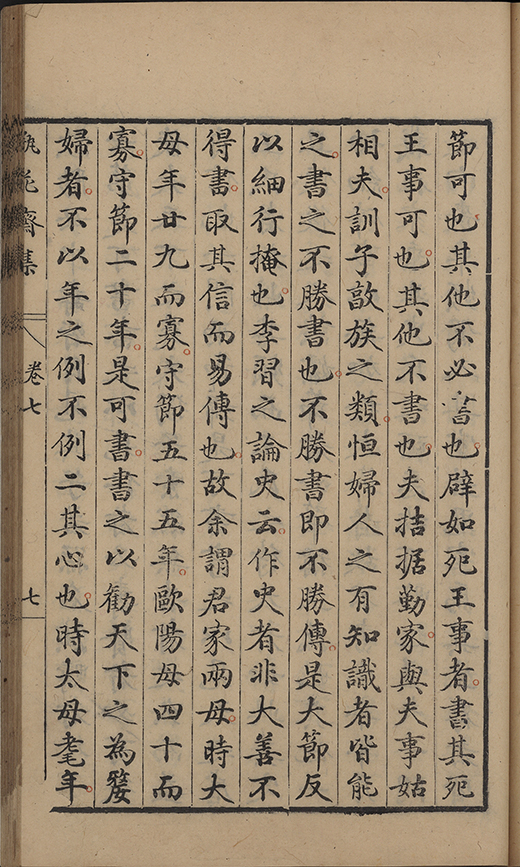 節可也其他不必書也辟如死王事者書其死
王事可也其他不書也夫拮据勤家與夫事姑
相夫訓子敦族之類恒婦人之有知識者皆能
之書之不勝書也不勝書即不勝傳是大節反
以細行掩也李習之論史云作史者非大善不
得書取其信而易傳也故余謂君家兩母時大
母年廿九而寡守節五十五年歐陽母四十而
寡守節二十年是可書書之以勸天下之為嫠
婦者不以年之例不例二其心也時太母耄年
瓶花齋集
卷七
七